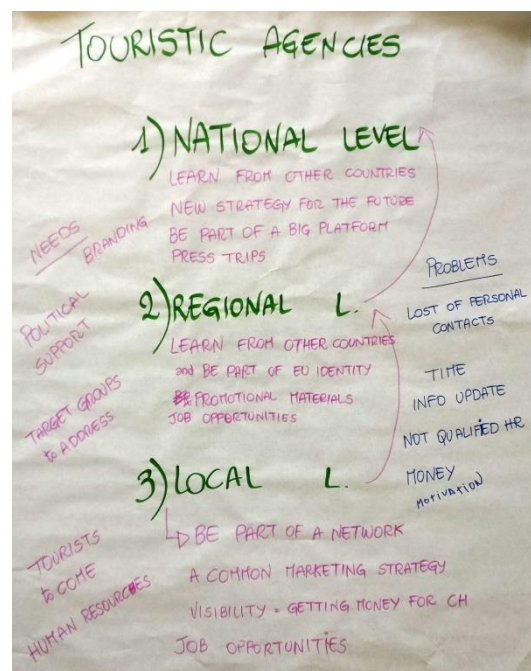 TOURISTIC AGENCIES
1) NATIONAL LEVEL
LEARN FROM OTHER COUNTRIES
NEW STRATEGY FOR THE FUTURE
BE PART OF A BIG PLATFORM
PRESS TRIPS
2) REGIONAL L.
LEARN FROM OTHER COUNTRIES
and BE PART OF EU IDENTITY
PROMOTIONAL MATERIALS
JOB OPPORTUNITIES
3) LOCAL L.
BE PART OF A NETWORK
A COMMON MARKETING STRATEGY
VISIBILITY = GETTING MONEY FOR CH
JOB OPPORTUNITIES
NEEDS
BRANDING
POLITICAL
SUPPORT
TARGET GROUPS
to ADDRESS
TOURISTS
to COME
HUMAN RESOURCES
PROBLEMS
LOST OF PERSONAL
CONTACTS
TIME
INFO UPDATE
NOT QUALIFIED HR
MONEY
MOTIVATION